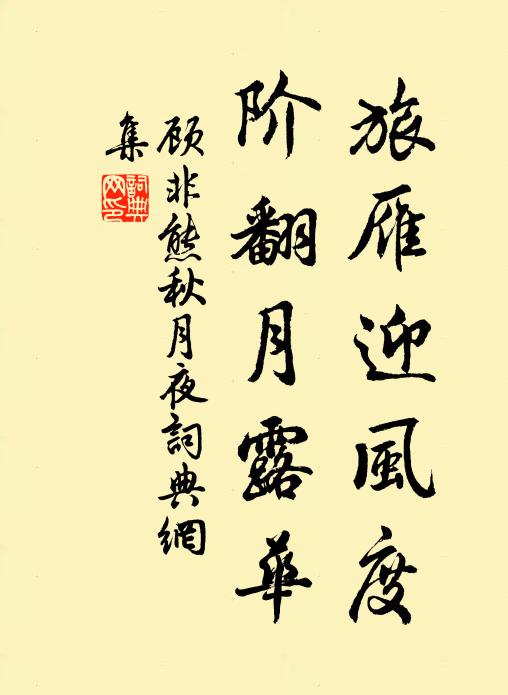 旅雁迎風度
阶翻月露華
顾非熊秋月夜詞典網
集
詞典
网印